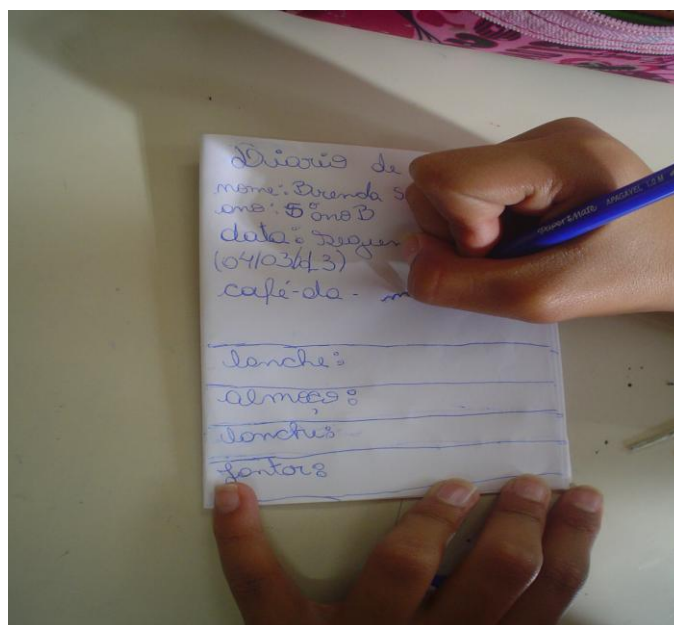 Diario de
nome: Brenda S
ano: 5º ano B
data: segun
(04/03/13)
café-da- m
lanche:
almoço:
lanche:
jantar:
Paper Mate APAGÁVEL 1.0 M